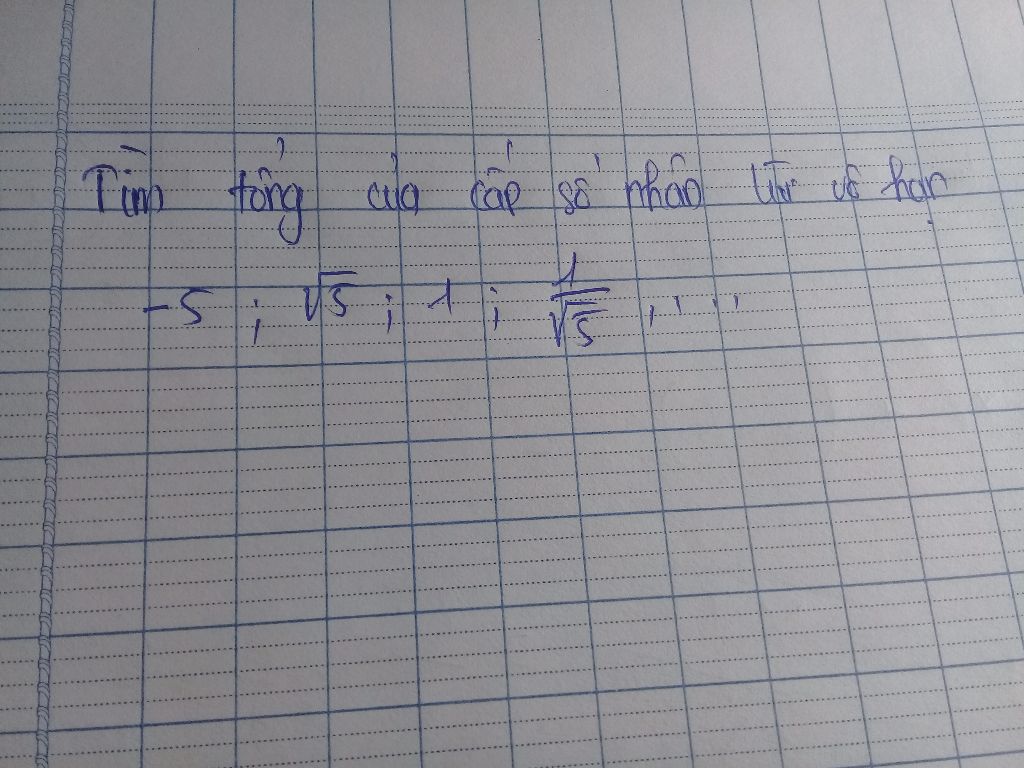 Tìm tổng của cấp số nhân lùi vô hạn
-5 ; √5 ; 1 ; 1/√5 , ...